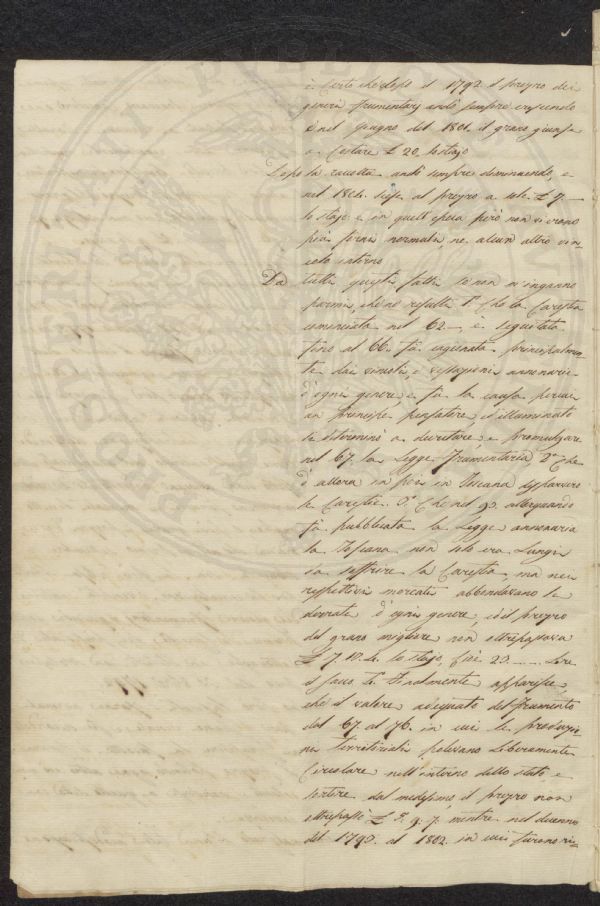 è certo che dopo il 1792 il prezzo dei
generi frumentarj andò sempre crescendo
e nel giugno del 1801. il grano giunse
a Costare £ 20. lo stajo
Dopo la raccolta andò sempre diminuendo, e
nel 1804. scese al prezzo a sole £ 7.
lo stajo e in quell'epoca però non vi erono
più forni normali, ne alcun altro vin-
colo interno
Da tutti questi fatti se non m'inganno
parmi, che ne resulti 1° Che la Carestia
cominciata nel 62. e seguitata
fino al 66. fu cagionata principalmen-
te dai vincoli, e vessazioni annonarie
d'ogni genere e fu la causa per cui
un Principe pensatore, ed illuminato
si determinò a decretare, e promulgare
nel 67. la Legge Frumentaria, 2° Che
d'allora in poi in Toscana disparvero
le Carestie. 3° Che nel 93. allorquando
fù pubblicata la Legge annonaria
la Toscana non solo era Lungi
da soffrire la Carestia, ma nei
respettivi mercati abbondavano le
derrate d'ogni genere, ed il prezzo
del grano migliore non oltrepassava
£ 7. 10. 4. lo stajo, cioè 23. Lire
il sacco, 4° Finalmente apparisce
che il valore adeguato del frumento
dal 67. al 76. in cui le produzio-
ni territoriali potevano Liberamente
Circolare nell'interno dello stato e
sortire dal medesimo il prezzo non
oltrepassò £ 5. 9. 7. mentre nel decennio
del 1793. al 1802. in cui furono ri-
PROSPERITATI PUBLICAE